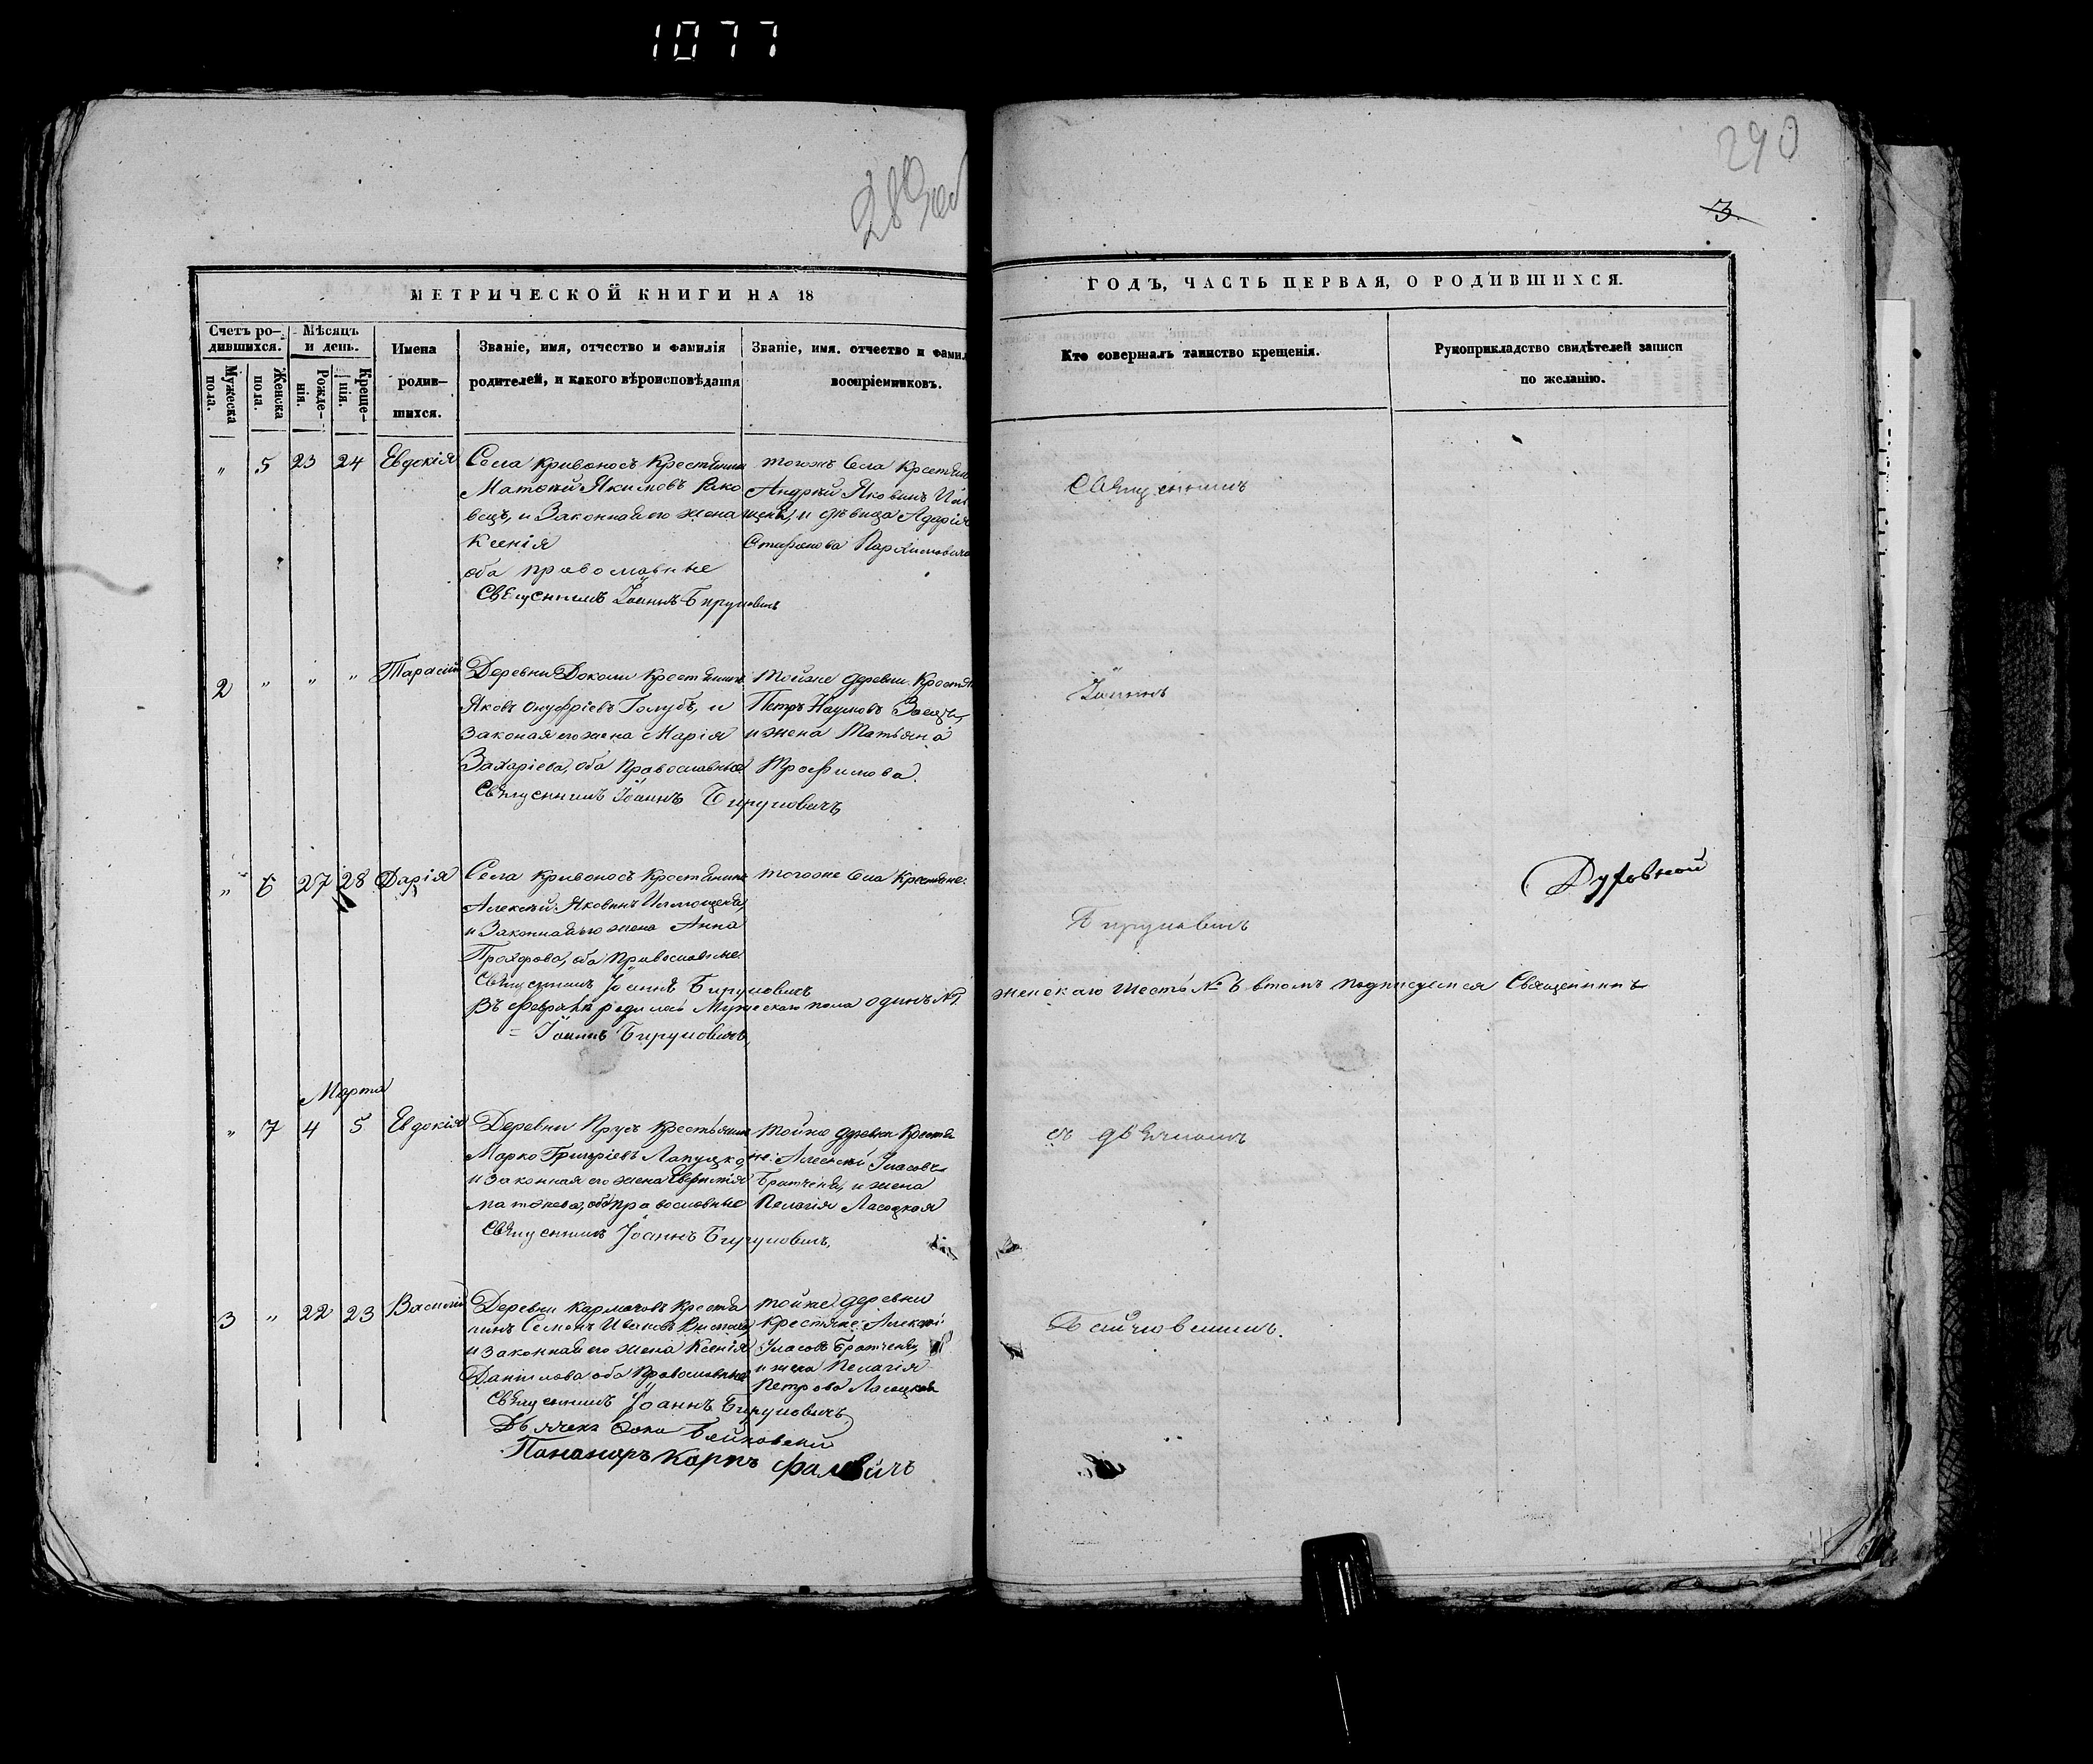 1077
290
3.
МЕТРИЧЕСКОЙ КНИГИ НА 18
ГОДЪ, ЧАСТЬ ПЕРВАЯ, О РОДИВШИХСЯ.
Счетъ ро-дившихся.
Мужеска пола.
Женска пола.
Мѣсяцъ и день.
Рожде-нія.
Креще-нія.
Имена родив-шихся.
Званіе, имя, отчество и фамилія
родителей, и какого вѣроисповѣданія
Званіе, имя. отчество и фамил
воспріемниковъ.
Кто совершалъ таинство крещенія.
Рукоприкладство свидѣтелей записи
по желанію.
" 5 23 24 Евдокія
Села Кривоносъ Крестянинъ
Матвѣй Якимовъ Рако
вецъ, и Законная его жена
Ксенія
оба православные
Священникъ Іоаннъ Бируковичъ
тогожъ Села Крестьян
Андрѣй Яковинъ
и дѣвица
Стефанова
Священникъ
2 " " " Тарасій
Деревни Доколи Крестянинъ
Яковъ Онуфріевъ Голубъ, и
Законая его жена Марія
Захаріева, оба Православные
Священникъ Іоаннъ Бируковичъ
Тойже деревни Крестя
Петръ Наумовъ Заецъ,
и жена Татьяна
Трофимова.
Іоаннъ
" 6 27 28 Дарія
Села Кривоносъ Крестянинъ
Алексѣй Яковинъ
и Законная его жена Анна
Прохорова, оба Православные
Священникъ Іоаннъ Бируковичъ
тогоже Села Крестяне:
Бируковичъ
Духовной
Въ Февралѣ родилось Мужескаго пола одинъ №1. женскаго шесть № 6 втомъ подписуемся Священникъ
= Іоаннъ Бируковичъ,
Марта
" 7 4 5 Евдокія
Деревни Прусъ Крестьянинъ
Марко Григоріевъ Лапуцко,
и Законная его жена
оба православные
Священникъ Іоаннъ Бируковичъ,
Тойже деревни Крестья
не: Алексѣй Уласовъ
Братченя, и жена
Пелагія Ласоцкая
съ дьячкомъ
3 " 22 23 Василій
Деревни Кармачовъ Крестя
нинъ Семенъ Ивановъ
и Законная его жена Ксенія
Данилова оба Православные
Священникъ Іоаннъ Бируковичъ
тойже деревни
Крестяне: Алексѣй
Уласовъ Братченя,
и жена Пелагія
Петрова Ласоцкая
Дьячекъ
Пономаръ Карпъ